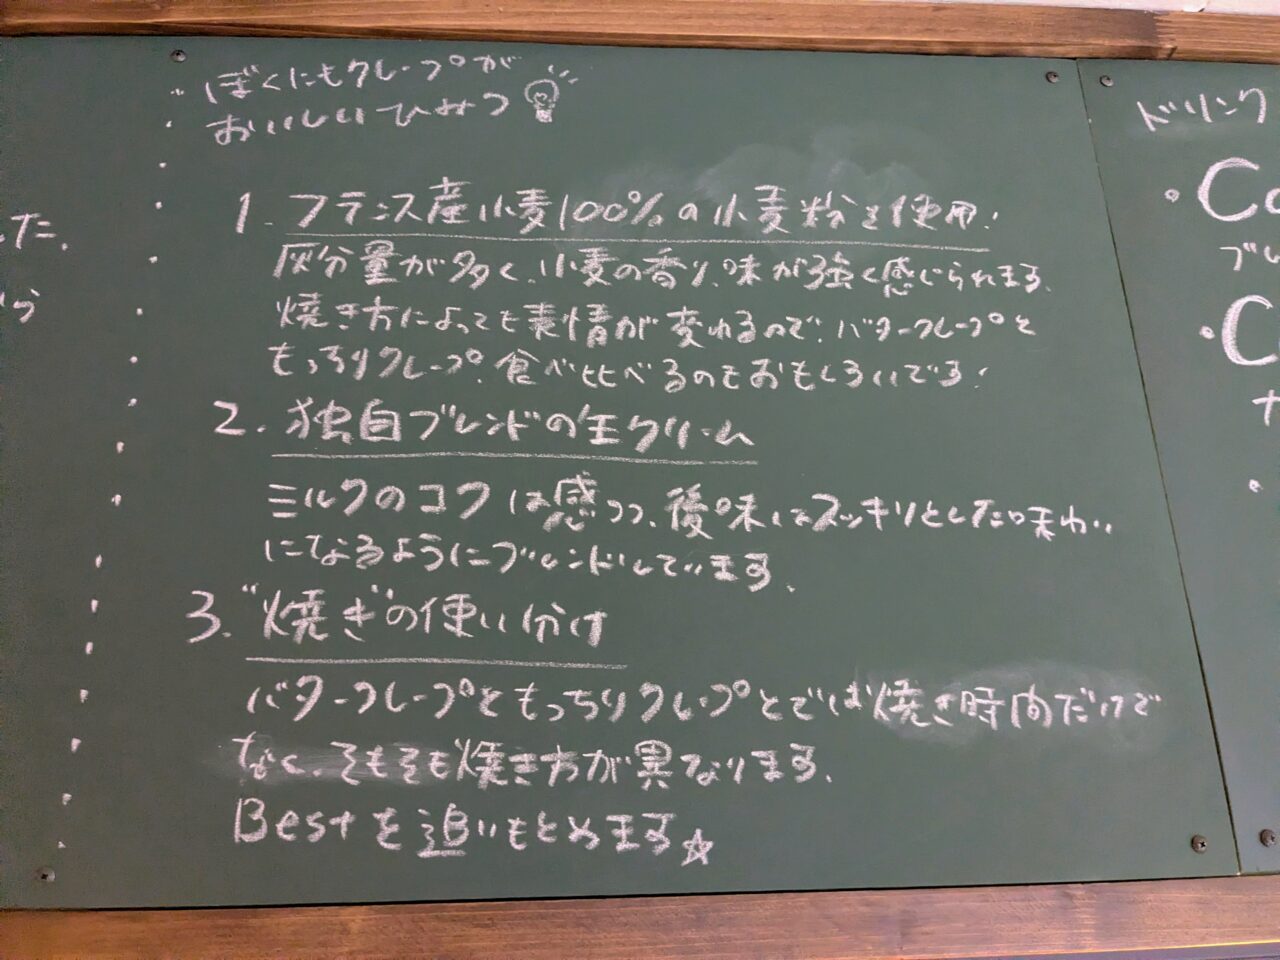 した.
ぼくにもクレープが
おいしいひみつ
1. フランス産小麦100%の小麦粉を使用!
灰分量が多く、小麦の香り、味が強く感じられます.
焼き方によっても表情が変わるので、バタークレープと
もっちりクレープ、食べ比べるのもおもしろいです!
2. 独自ブレンドの生クリーム
ミルクのコクは感じつつ、後味はスッキリとした味わい
になるようにブレンドしています.
3. "焼き"の使い分け
バタークレープともっちりクレープとでは焼き時間だけで
なく、そもそも焼き方が異なります.
Bestを追いもとめます☆
ドリンク